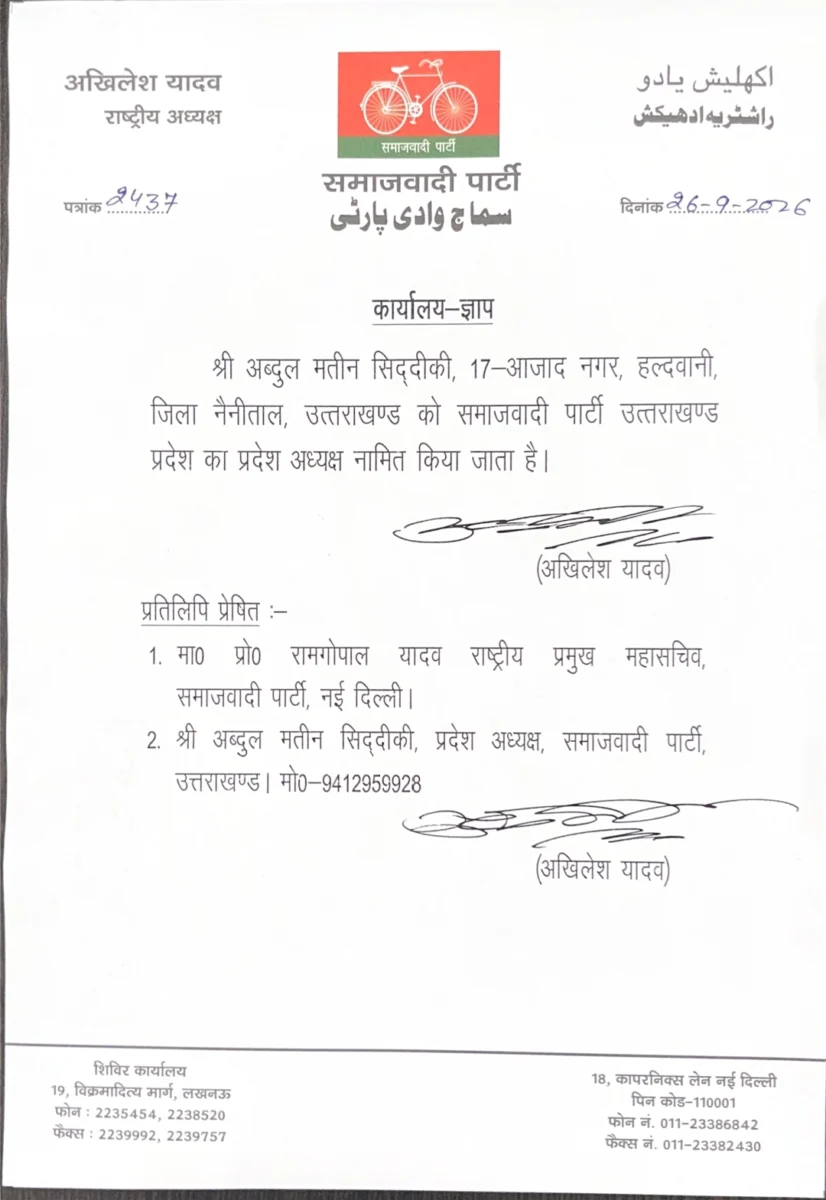 अखिलेश यादव
राष्ट्रीय अध्यक्ष
समाजवादी पार्टी
اکھلیش یادو
راشٹریہ ادھیکش
समाजवादी पार्टी
سماج وادی پارٹی
पत्रांक 2437
दिनांक 26-9-2026
कार्यालय–ज्ञाप
श्री अब्दुल मतीन सिद्दीकी, 17–आजाद नगर, हल्दवानी,
जिला नैनीताल, उत्तराखण्ड को समाजवादी पार्टी उत्तराखण्ड
प्रदेश का प्रदेश अध्यक्ष नामित किया जाता है।
(अखिलेश यादव)
प्रतिलिपि प्रेषित :–
1. मा0 प्रो0 रामगोपाल यादव राष्ट्रीय प्रमुख महासचिव,
समाजवादी पार्टी, नई दिल्ली।
2. श्री अब्दुल मतीन सिद्दीकी, प्रदेश अध्यक्ष, समाजवादी पार्टी,
उत्तराखण्ड। मो0–9412959928
(अखिलेश यादव)
शिविर कार्यालय
19, विक्रमादित्य मार्ग, लखनऊ
फोन : 2235454, 2238520
फैक्स : 2239992, 2239757
18, कापरनिक्स लेन नई दिल्ली
पिन कोड–110001
फोन नं. 011–23386842
फैक्स नं. 011–23382430